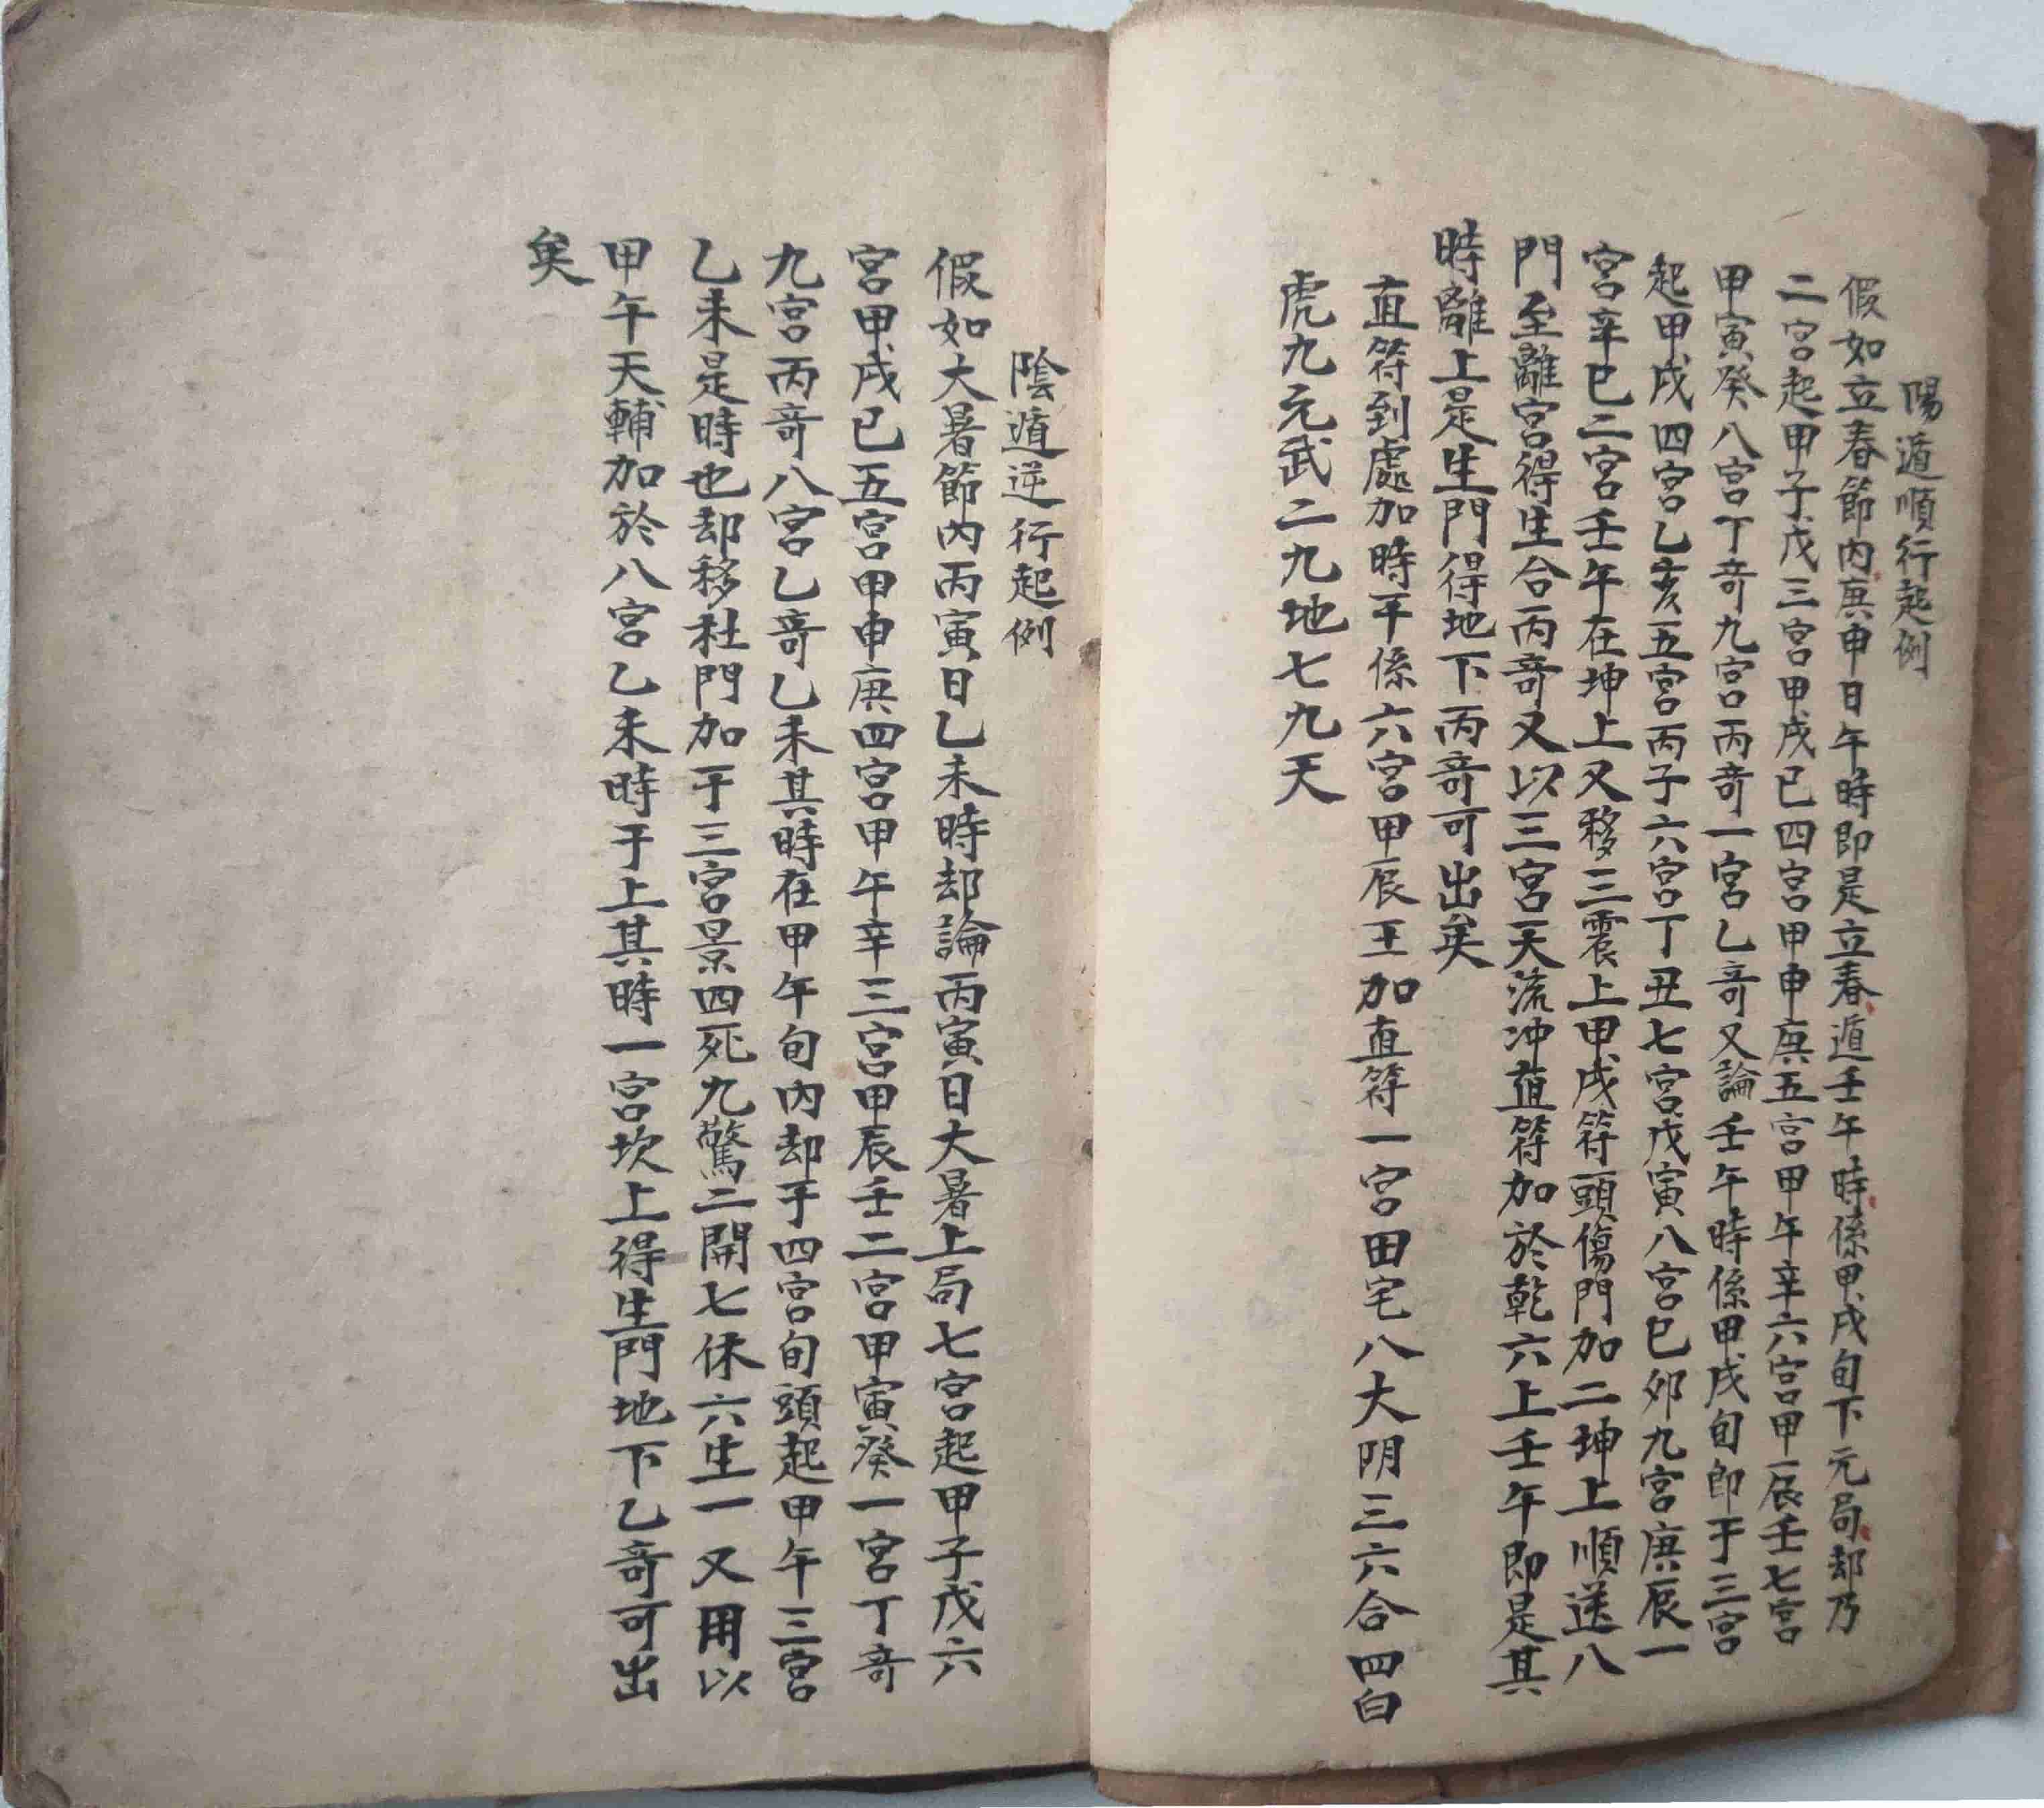 陽遁順行起例
假如立春節內庚申日午時即是立春遁壬午時係甲戌旬下元局却乃
二宮起甲子戊三宮甲戌巳四宮甲申庚五宮甲午辛六宮甲辰壬七宮
甲寅癸八宮丁奇九宮丙奇一宮乙奇又論壬午時係甲戌旬即于三宮
起甲戌四宮乙亥五宮丙子六宮丁丑七宮戊寅八宮巳卯九宮庚辰一
宮辛巳二宮壬午在坤上又移三震上甲戌符頭傷門加二坤上順送八
門至離宮得生合丙奇又以三宮天流冲直符加於乾六上壬午即是其
時離上是生門得地下丙奇可出矣
直符到處加時干係六宮甲辰王加直符一宮田宅八大阴三六合四白
虎九元武二九地七九天
陰遁逆行起例
假如大暑節內丙寅日乙未時却論丙寅日大暑上局七宮起甲子戊六
宮甲戌巳五宮甲申庚四宮甲午辛三宮甲辰壬二宮甲寅癸一宮丁奇
九宮丙奇八宮乙奇乙未其時在甲午旬內却于四宮旬頭起甲午三宮
乙未是時也却移杜門加于三宮景四死九驚二開七休六生一又用以
甲午天輔加於八宮乙未時于上其時一宮坎上得生門地下乙奇可出
矣